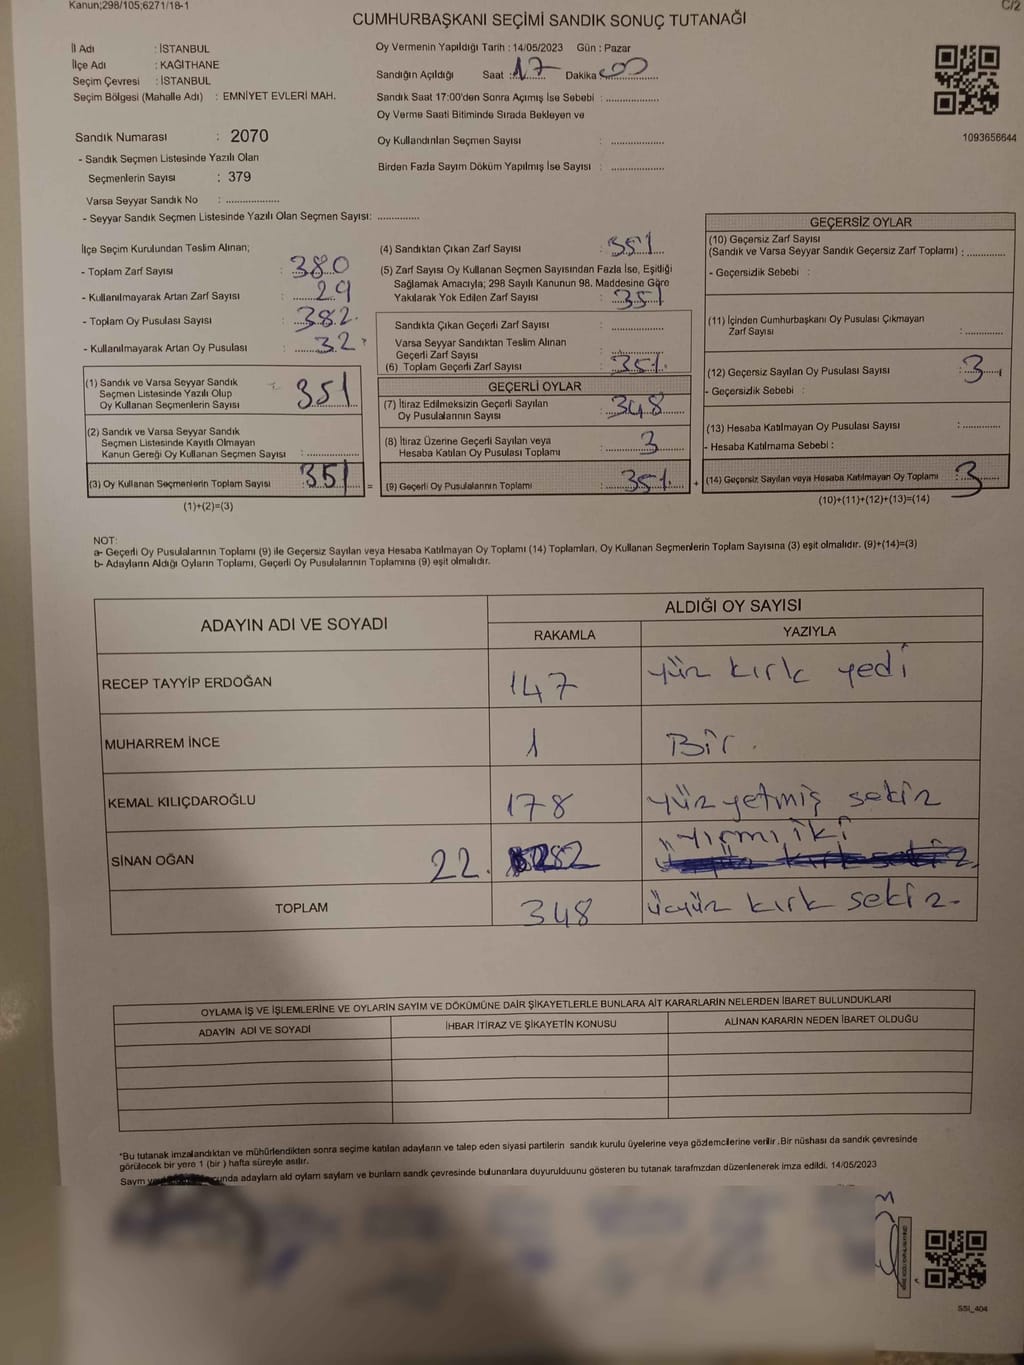 Kanun;298/105;6271/18-1
C/2
CUMHURBAŞKANI SEÇİMİ SANDIK SONUÇ TUTANAĞI
İl Adı : İSTANBUL
İlçe Adı : KAĞITHANE
Seçim Çevresi : İSTANBUL
Seçim Bölgesi (Mahalle Adı) : EMNİYET EVLERİ MAH.
Oy Vermenin Yapıldığı Tarih : 14/05/2023 Gün : Pazar
Sandığın Açıldığı Saat : 17 Dakika 00
Sandık Saat 17:00'den Sonra Açımış İse Sebebi :
Oy Verme Saati Bitiminde Sırada Bekleyen ve
Oy Kullandırılan Seçmen Sayısı :
Birden Fazla Sayım Döküm Yapılmış İse Sayısı :
1093656644
Sandık Numarası : 2070
- Sandık Seçmen Listesinde Yazılı Olan
Seçmenlerin Sayısı : 379
Varsa Seyyar Sandık No :
- Seyyar Sandık Seçmen Listesinde Yazılı Olan Seçmen Sayısı:
İlçe Seçim Kurulundan Teslim Alınan;
- Toplam Zarf Sayısı : 380
- Kullanılmayarak Artan Zarf Sayısı : 29
- Toplam Oy Pusulası Sayısı : 382
- Kullanılmayarak Artan Oy Pusulası : 32
(1) Sandık ve Varsa Seyyar Sandık
Seçmen Listesinde Yazılı Olup
Oy Kullanan Seçmenlerin Sayısı : 351
(2) Sandık ve Varsa Seyyar Sandık
Seçmen Listesinde Kayıtlı Olmayan
Kanun Gereği Oy Kullanan Seçmen Sayısı :
(3) Oy Kullanan Seçmenlerin Toplam Sayısı : 351
(1)+(2)=(3)
(4) Sandıktan Çıkan Zarf Sayısı : 351
(5) Zarf Sayısı Oy Kullanan Seçmen Sayısından Fazla İse, Eşitliği
Sağlamak Amacıyla; 298 Sayılı Kanunun 98. Maddesine Göre
Yakılarak Yok Edilen Zarf Sayısı : 351
Sandıkta Çıkan Geçerli Zarf Sayısı :
Varsa Seyyar Sandıktan Teslim Alınan
Geçerli Zarf Sayısı :
(6) Toplam Geçerli Zarf Sayısı : 351
=
GEÇERLİ OYLAR
(7) İtiraz Edilmeksizin Geçerli Sayılan
Oy Pusulalarının Sayısı : 348
(8) İtiraz Üzerine Geçerli Sayılan veya
Hesaba Katılan Oy Pusulası Toplamı : 3
(9) Geçerli Oy Pusulalarının Toplamı : 351
+
GEÇERSİZ OYLAR
(10) Geçersiz Zarf Sayısı
(Sandık ve Varsa Seyyar Sandık Geçersiz Zarf Toplamı) :
- Geçersizlik Sebebi :
(11) İçinden Cumhurbaşkanı Oy Pusulası Çıkmayan
Zarf Sayısı :
(12) Geçersiz Sayılan Oy Pusulası Sayısı : 3
- Geçersizlik Sebebi :
(13) Hesaba Katılmayan Oy Pusulası Sayısı :
- Hesaba Katılmama Sebebi :
(14) Geçersiz Sayılan veya Hesaba Katılmayan Oy Toplamı : 3
(10)+(11)+(12)+(13)=(14)
NOT:
a- Geçerli Oy Pusulalarının Toplamı (9) ile Geçersiz Sayılan veya Hesaba Katılmayan Oy Toplamı (14) Toplamları, Oy Kullanan Seçmenlerin Toplam Sayısına (3) eşit olmalıdır. (9)+(14)=(3)
b- Adayların Aldığı Oyların Toplamı, Geçerli Oy Pusulalarının Toplamına (9) eşit olmalıdır.
ADAYIN ADI VE SOYADI
ALDIĞI OY SAYISI
RAKAMLA YAZIYLA
RECEP TAYYİP ERDOĞAN 147 yüz kırk yedi
MUHARREM İNCE 1 Bir.
KEMAL KILIÇDAROĞLU 178 yüz yetmiş sekiz
SİNAN OĞAN 22. yirmi iki
TOPLAM 348 üçyüz kırk sekiz
OYLAMA İŞ VE İŞLEMLERİNE VE OYLARIN SAYIM VE DÖKÜMÜNE DAİR ŞİKAYETLERLE BUNLARA AİT KARARLARIN NELERDEN İBARET BULUNDUKLARI
ADAYIN ADI VE SOYADI İHBAR İTİRAZ VE ŞİKAYETİN KONUSU ALINAN KARARIN NEDEN İBARET OLDUĞU
*Bu tutanak imzalandıktan ve mühürlendikten sonra seçime katılan adayların ve talep eden siyasi partilerin sandık kurulu üyelerine veya gözlemcilerine verilir .Bir nüshası da sandık çevresinde
görülecek bir yere 1 (bir ) hafta süreyle asılır.
Sayım adayların ald oyların sayların ve bunların sandk çevresinde bulunanlara duyurulduunu gösteren bu tutanak tarafmzdan düzenlenerek imza edildi. 14/05/2023
SSI_404